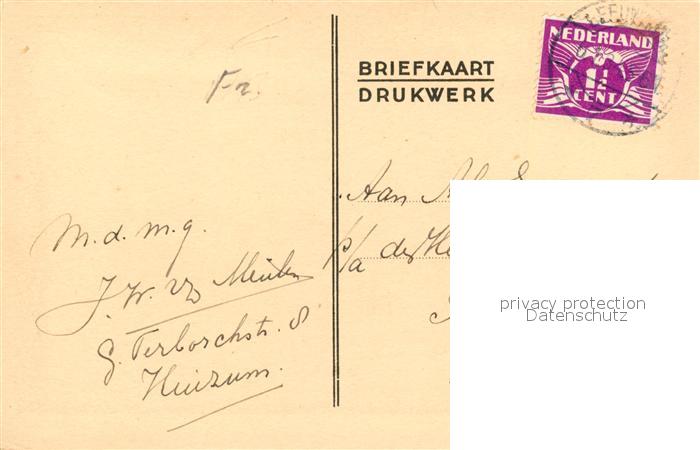 Fr.
BRIEFKAART
DRUKWERK
LEEUW
NEDERLAND
1½
CENT
Aan
p/a
M. d. m. g.
J. W. v/d Meulen
G. Terborchstr. 8
Huizum.
privacy protection
Datenschutz